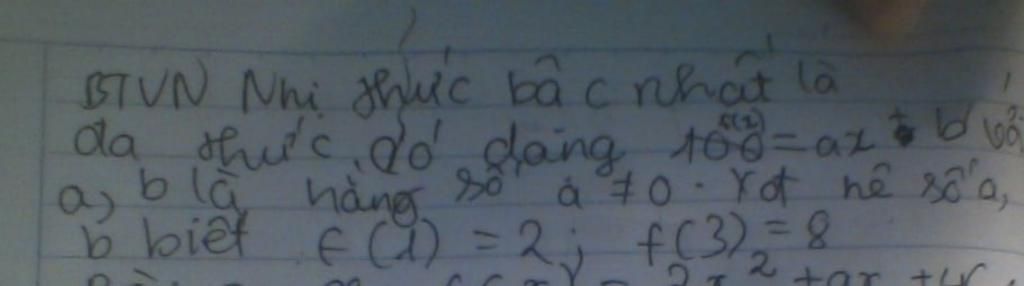 BTVN Nhị thức bậc nhất là
đa thức có dạng f(x) = ax + b với
a, b là hằng số a ≠ 0. hệ số a,
b biết f(1) = 2; f(3) = 8